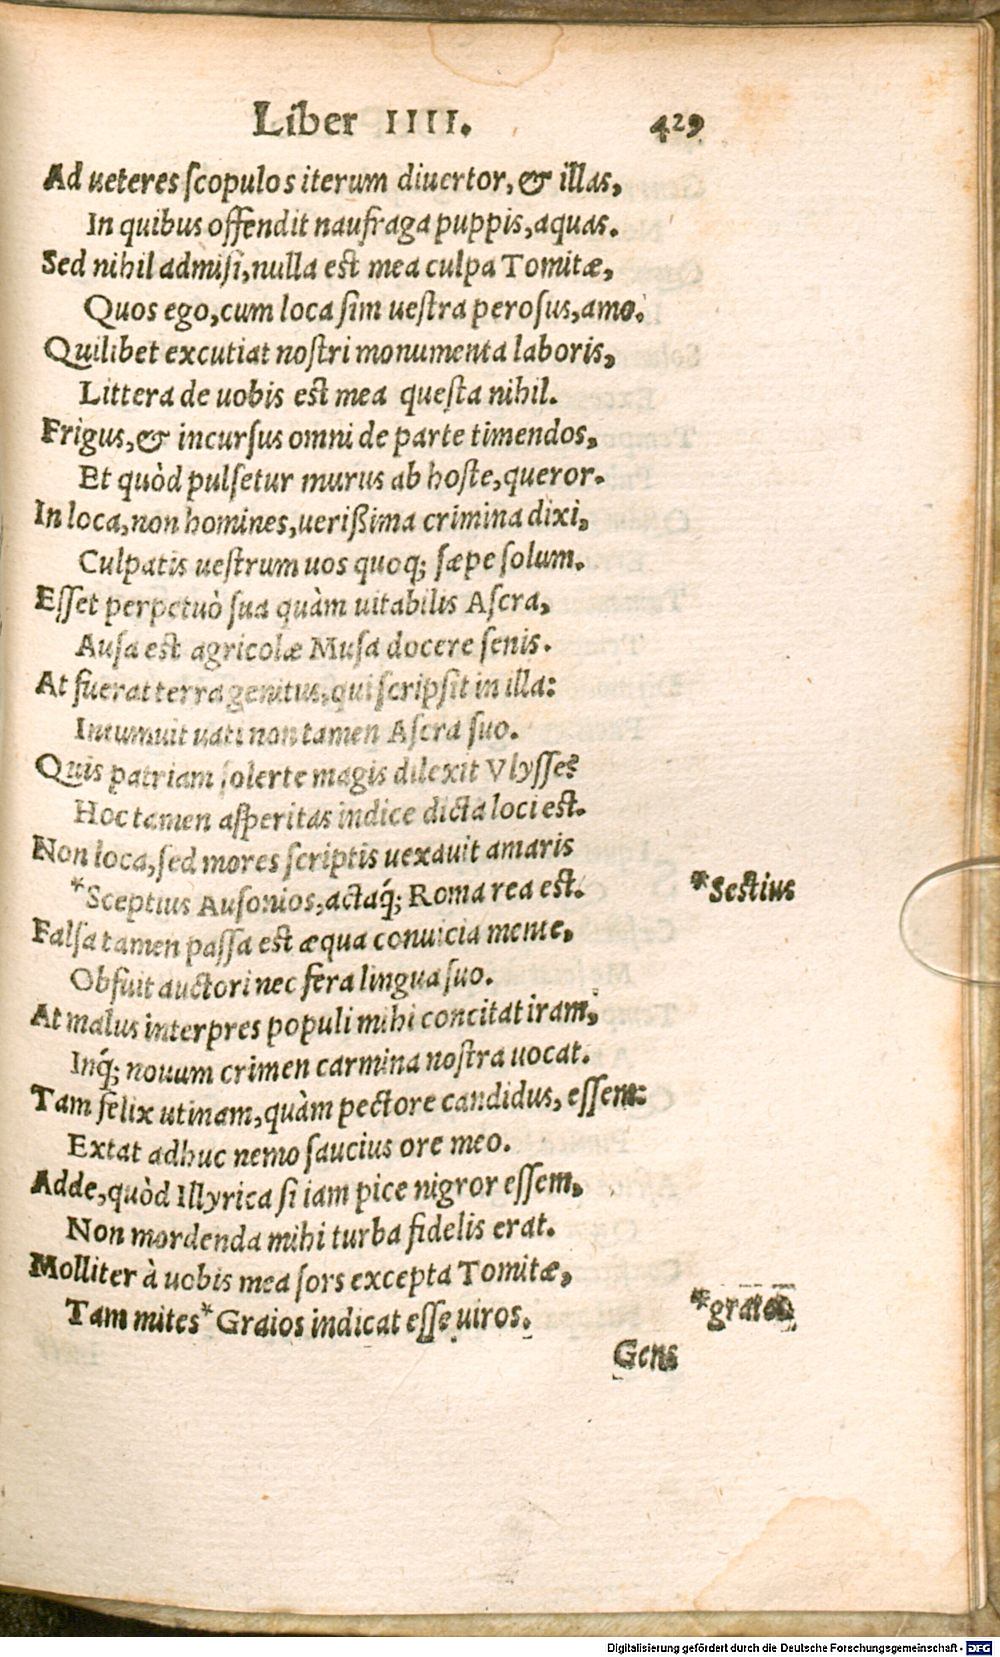 Liber IIII. 429
Ad ueteres scopulos iterum diuertor, & illas,
In quibus offendit naufraga puppis, aquas.
Sed nihil admisi, nulla est mea culpa Tomitæ,
Quos ego, cum loca sim uestra perosus, amo.
Quilibet excutiat nostri monumenta laboris,
Littera de uobis est mea questa nihil.
Frigus, & incursus omni de parte timendos,
Et quòd pulsetur murus ab hoste, queror.
In loca, non homines, uerißima crimina dixi,
Culpatis uestrum uos quoq; sæpe solum.
Esset perpetuò sua quàm uitabilis Ascra,
Ausa est agricolæ Musa docere senis.
At fuerat terra genitus, qui scripsit in illa:
Intumuit uati non tamen Ascra suo.
Quis patriam solerte magis dilexit Vlysse?
Hoc tamen asperitas indice dicta loci est.
Non loca, sed mores scriptis uexauit amaris
*Sceptius Ausonios, actaq́; Roma rea est. *Sestius
Falsa tamen passa est æqua conuicia mente,
Obfuit auctori nec fera lingua suo.
At malus interpres populi mihi concitat iram,
Inq́; nouum crimen carmina nostra uocat.
Tam felix utinam, quàm pectore candidus, essem:
Extat adhuc nemo saucius ore meo.
Adde, quòd Illyrica si iam pice nigror essem,
Non mordenda mihi turba fidelis erat.
Molliter à uobis mea sors excepta Tomitæ,
Tam mites* Graios indicat esse uiros. *
Gens
Digitalisierung gefördert durch die Deutsche Forschungsgemeinschaft - DFG